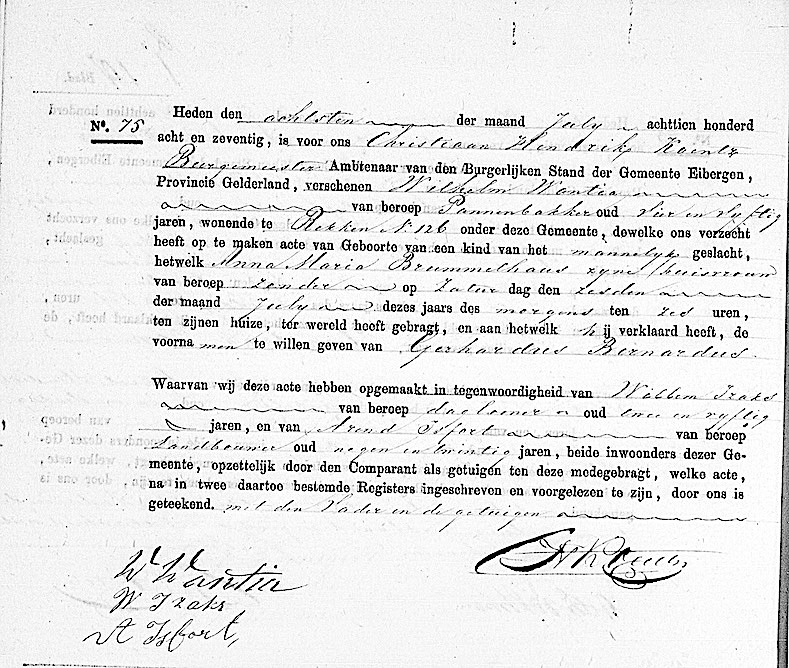 Heden den achtsten der maand July achttien honderd
No. 75
acht en zeventig, is voor ons Christiaan Hendrik Koentz
Burgemeester Ambtenaar van den Burgerlijken Stand der Gemeente Eibergen,
Provincie Gelderland, verschenen Wilhelm Wantia
van beroep Pannenbakker oud vier en vyftig
jaren, wonende te Rekken No 126 onder deze Gemeente, dewelke ons verzocht
heeft op te maken acte van Geboorte van een kind van het mannelyk geslacht,
hetwelk Anna Maria Brummelhaus zyne huisvrouw
van beroep zonder op Zatur dag den zesden
der maand July dezes jaars des morgens ten zes uren,
ten zijnen huize, ter wereld heeft gebragt, en aan hetwelk hij verklaard heeft, de
voornamen te willen geven van Gerhardus Bernardus.
Waarvan wij deze acte hebben opgemaakt in tegenwoordigheid van Willem Izaks
van beroep daglooner oud twee en vyftig
jaren, en van Arend Isfort van beroep
Landbouwer oud negen en twintig jaren, beide inwoonders dezer Ge-
meente, opzettelijk door den Comparant als getuigen ten deze medegebragt, welke acte,
na in twee daartoe bestemde Registers ingeschreven en voorgelezen te zijn, door ons is
geteekend. met den Vader en de getuigen
W Wantia
W Izaks
A Isfort,